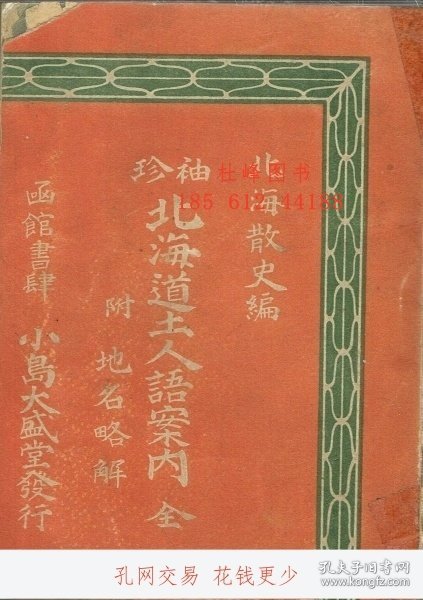 北海散史編
袖珍
北海道土人語案内 全
附 地名略解
函館書肆 小島大盛堂發行
杜峰图书
185 612 44188
孔网交易 花钱更少
孔夫子旧书网
www.kongfz.com